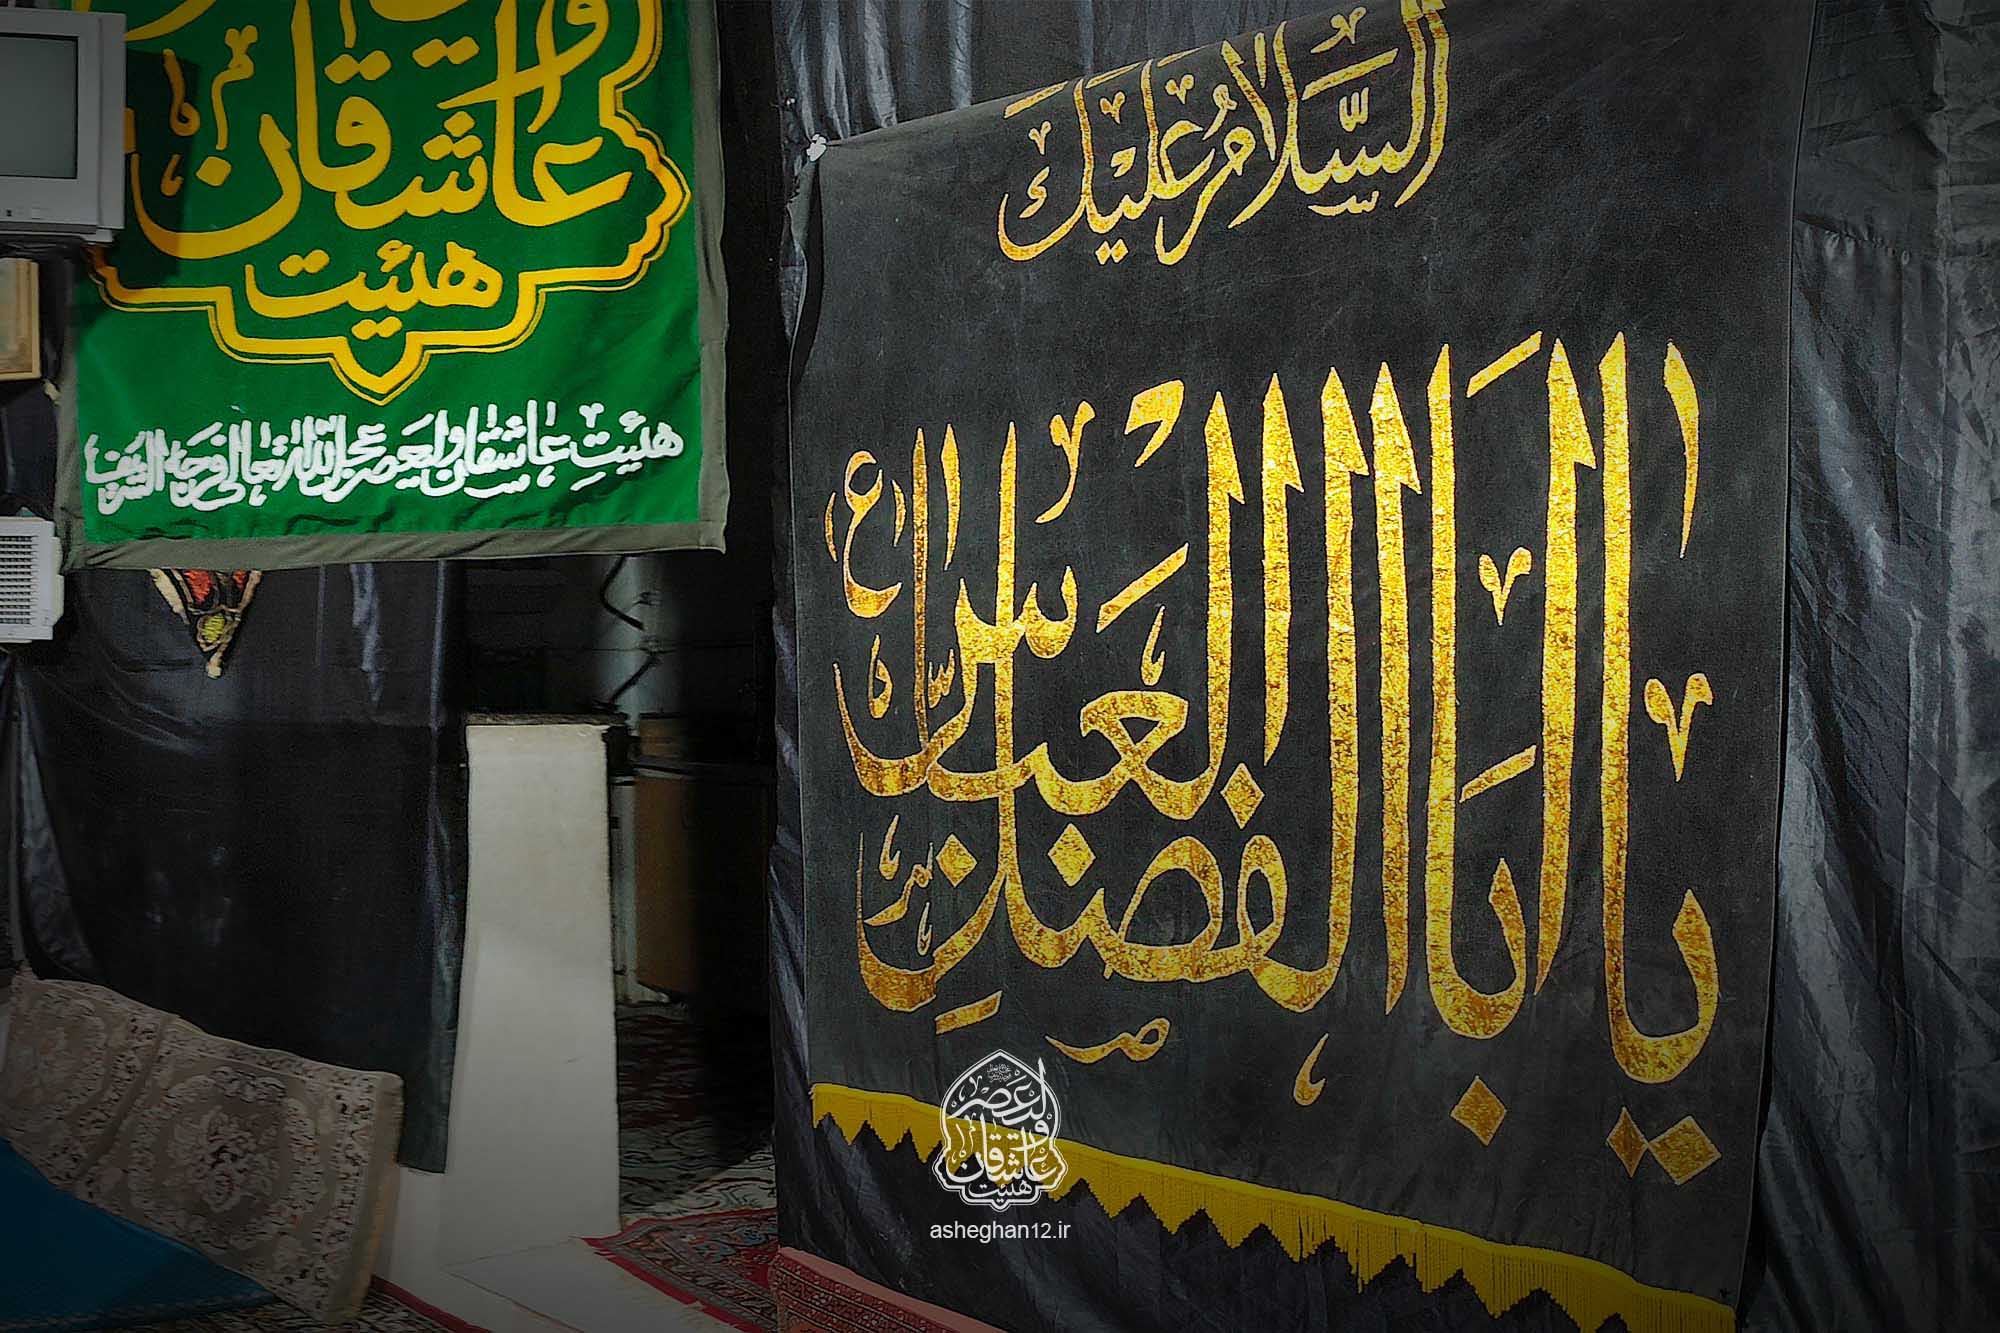 السَّلامُ عَلَیْكَ
یا اَبَاالفَضلِ
العَباس (ع)
عاشقان
هیئت
هیئتِ عاشقان ولیعصر عجل الله تعالی فرجه الشریف
ولیعصر
عاشقان
هیئت
asheghan12.ir